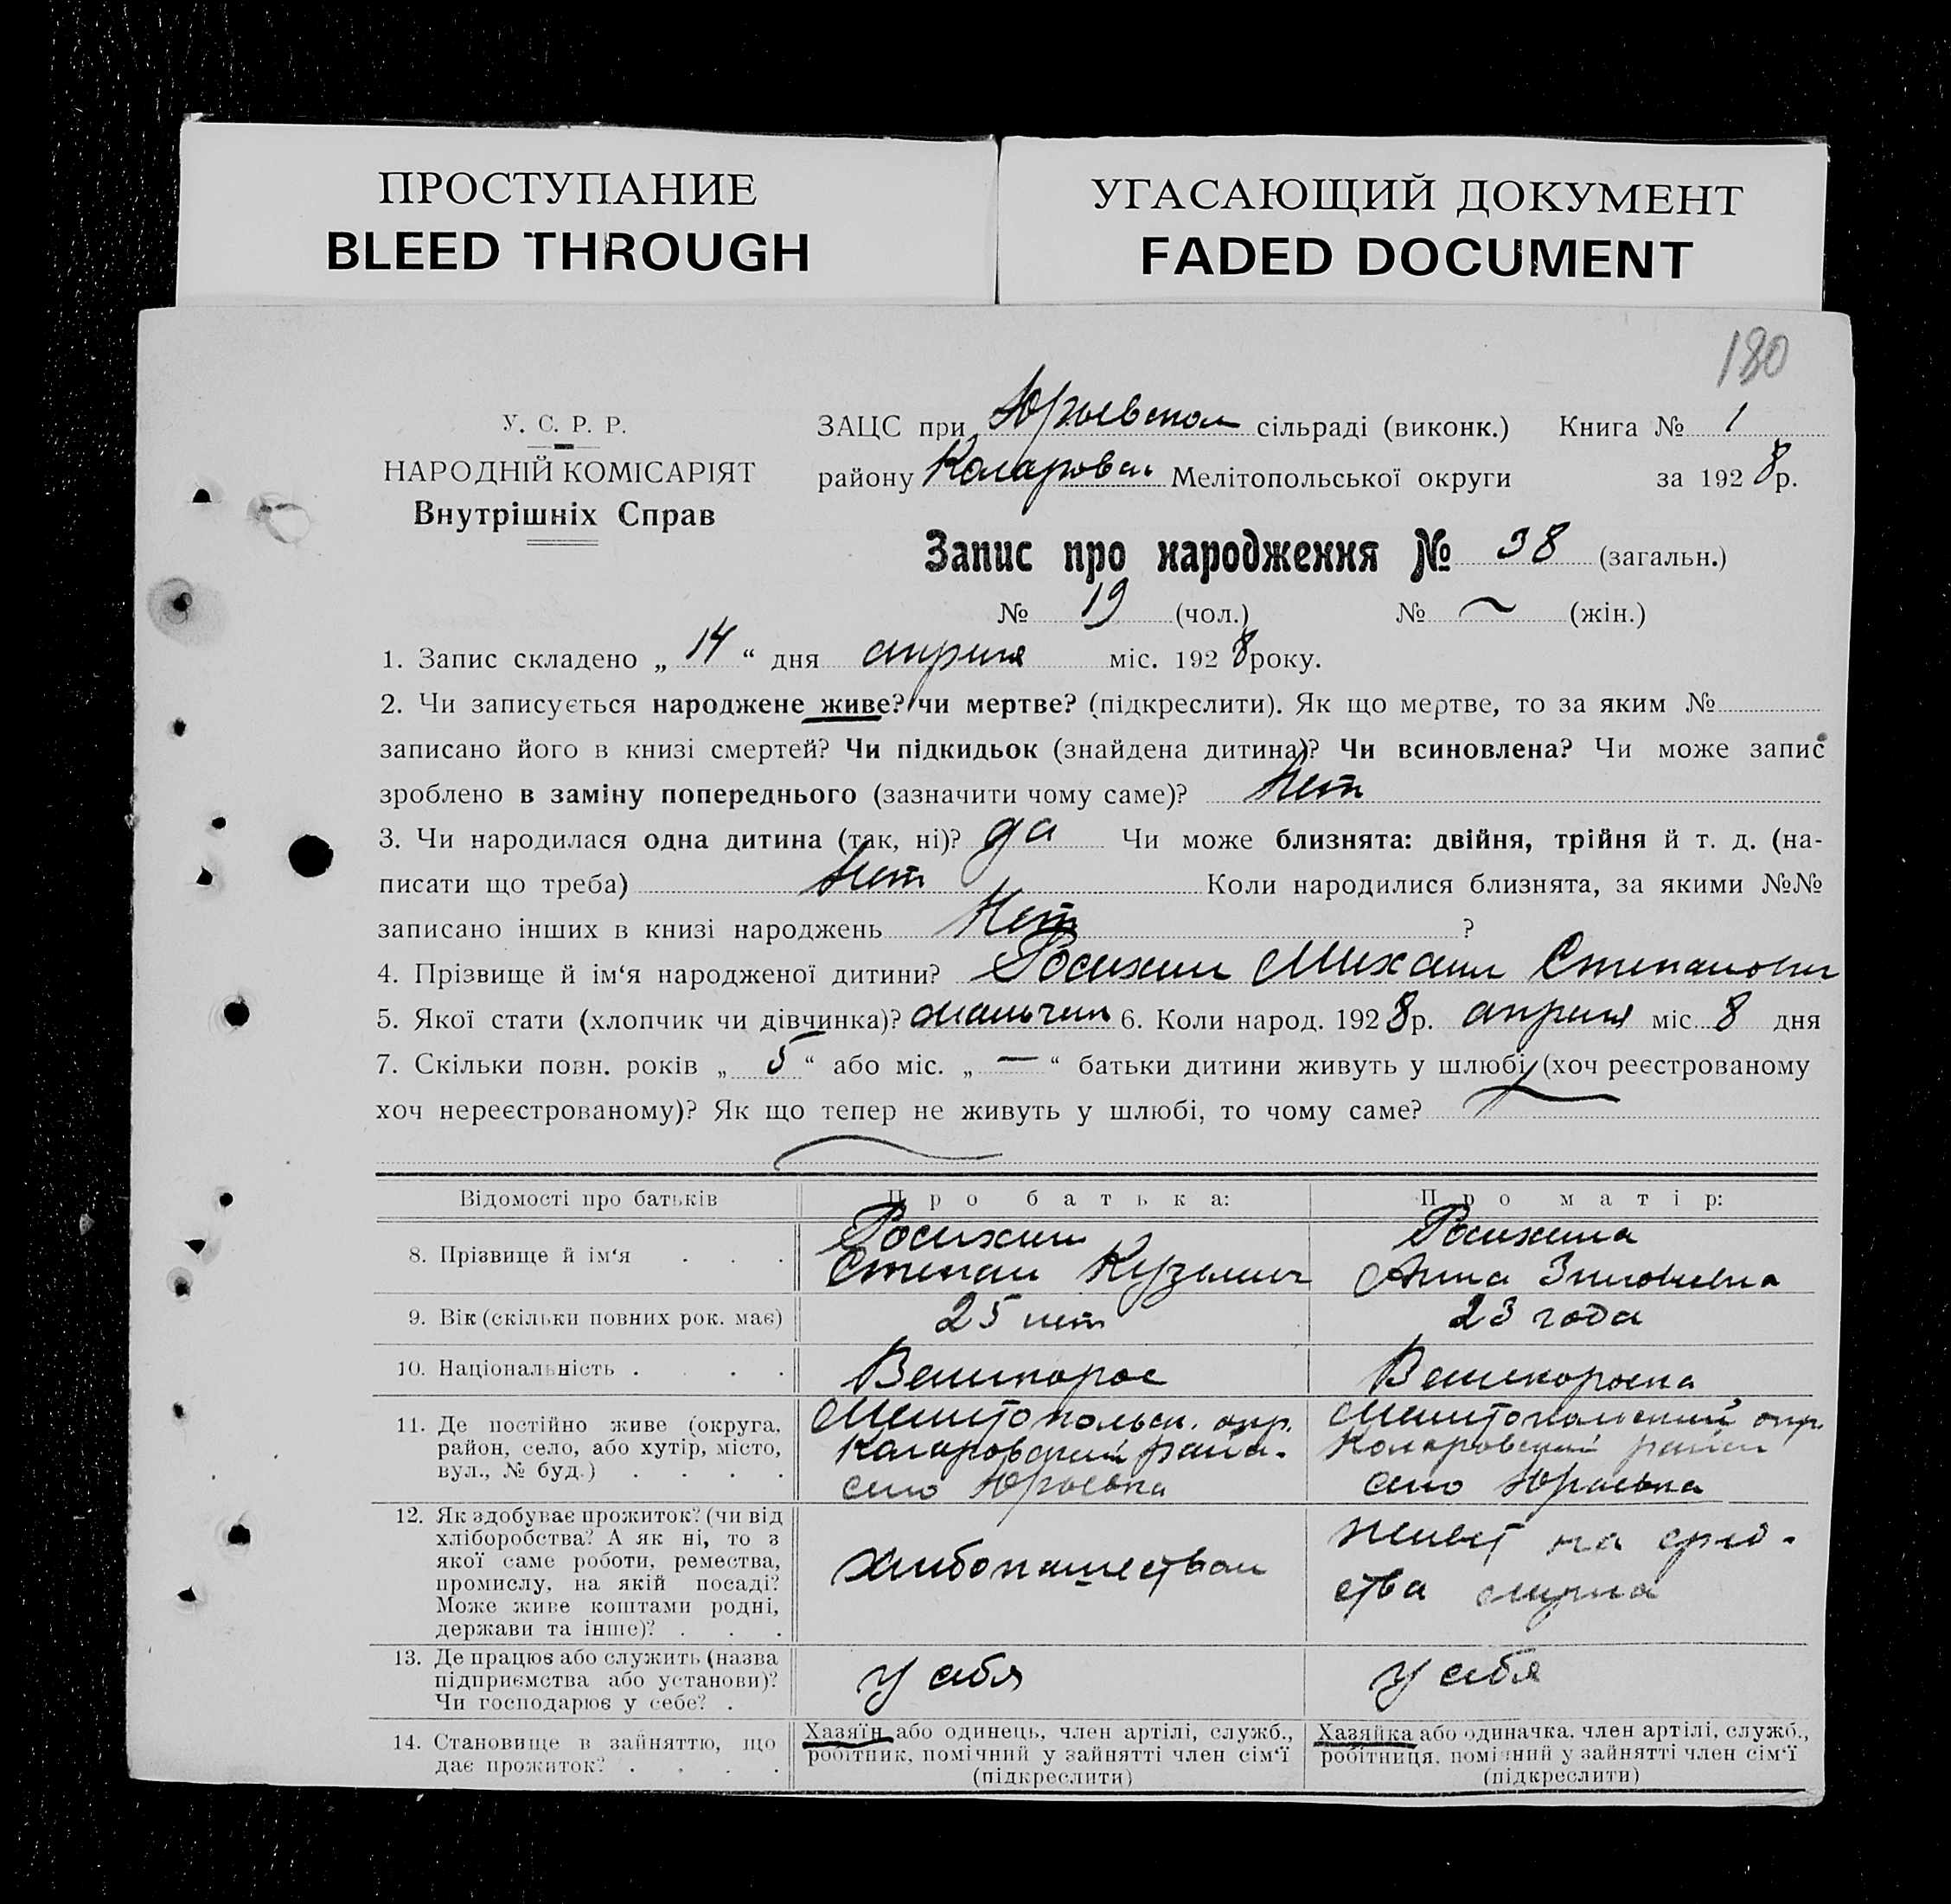 ПРОСТУПАНИЕ
BLEED THROUGH
УГАСАЮЩИЙ ДОКУМЕНТ
FADED DOCUMENT
180
У. С. Р. Р.
НАРОДНІЙ КОМІСАРІЯТ
Внутрішніх Справ
ЗАЦС при Юрьевском сільраді (виконк.) Книга № 1
району Коларовск. Мелітопольської округи за 1928р.
Запис про народження № 38 (загальн.)
№ 19 (чол.) № ~ (жін.)
1. Запис складено „ 14 “ дня апреля міс. 1928 року.
2. Чи записується народжене живе? чи мертве? (підкреслити). Як що мертве, то за яким №
записано його в книзі смертей? Чи підкидьок (знайдена дитина)? Чи всиновлена? Чи може запис
зроблено в заміну попереднього (зазначити чому саме)? Нет
3. Чи народилася одна дитина (так, ні)? да Чи може близнята: двійня, трійня й т. д. (на-
писати що треба) Нет Коли народилися близнята, за якими №№
записано інших в книзі народжень Нет ?
4. Прізвище й ім‘я народженої дитини? Росихин Михаил Степанович
5. Якої стати (хлопчик чи дівчинка)? мальчик 6. Коли народ. 1928р. апреля міс. 8 дня
7. Скільки повн. років „ 5 “ або міс. „ — “ батьки дитини живуть у шлюбі (хоч реєстрованому
хоч нереєстрованому)? Як що тепер не живуть у шлюбі, то чому саме?
Відомості про батьків Про батька: Про матір:
8. Прізвище й ім‘я . . . Росихин Степан Кузьмич Росихина Анна Зиновьевна
9. Вік (скільки повних рок. має) 25 лет 23 года
10. Національність . . . Великорос Великороска
11. Де постійно живе (округа,
район, село, або хутір, місто,
вул., № буд.) . . . .
Мелитопольск. окр.
Коларовский район.
село Юрьевка
Мелитопольский окр.
Коларовский район
село Юрьевка
12. Як здобуває прожиток? (чи від
хліборобства? А як ні, то з
якої саме роботи, ремества,
промислу, на якій посаді?
Може живе коштами родні,
держави та інше)? . . .
хлебопашеством
живет на сред-
ства мужа
13. Де працює або служить (назва
підприємства або установи)?
Чи господарює у себе? .
у себя
у себя
14. Становище в зайняттю, що
дає прожиток? . . . .
Хазяїн або одинець, член артілі, служб.,
робітник, помічний у зайнятті член сім‘ї
(підкреслити)
Хазяйка або одиначка, член артілі, служб.,
робітниця, помічний у зайнятті член сім‘ї
(підкреслити)